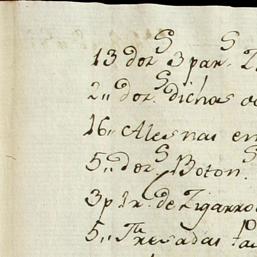 13 doz.s 3 par.s
2,, doz.s dichas
16,, Alesnas en
5,, doz.s Boton.s
3 p.r de Zigarro
5,,